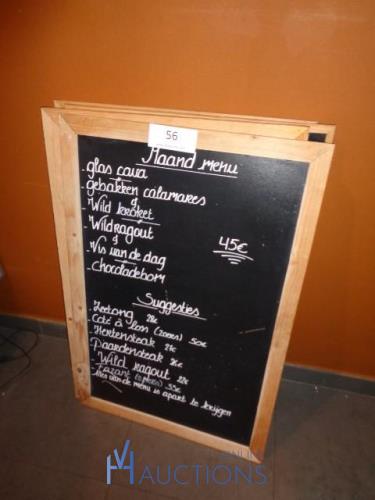 56
Maand menu
- glas cava
- gebakken calamares
&
- Wild kroket
&
- Wildragout
&
- Vis van de dag
- Chocoladebom
45€
Suggesties
- Zeetong 28€
- Coté à l'os (2pers) 50€
- Hertensteak 26€
- Paardensteak 26€
- Wild ragout 22€
- Fazant (2 pers) 55€
Alles van de menu is apart te krijgen
AUCTIONS